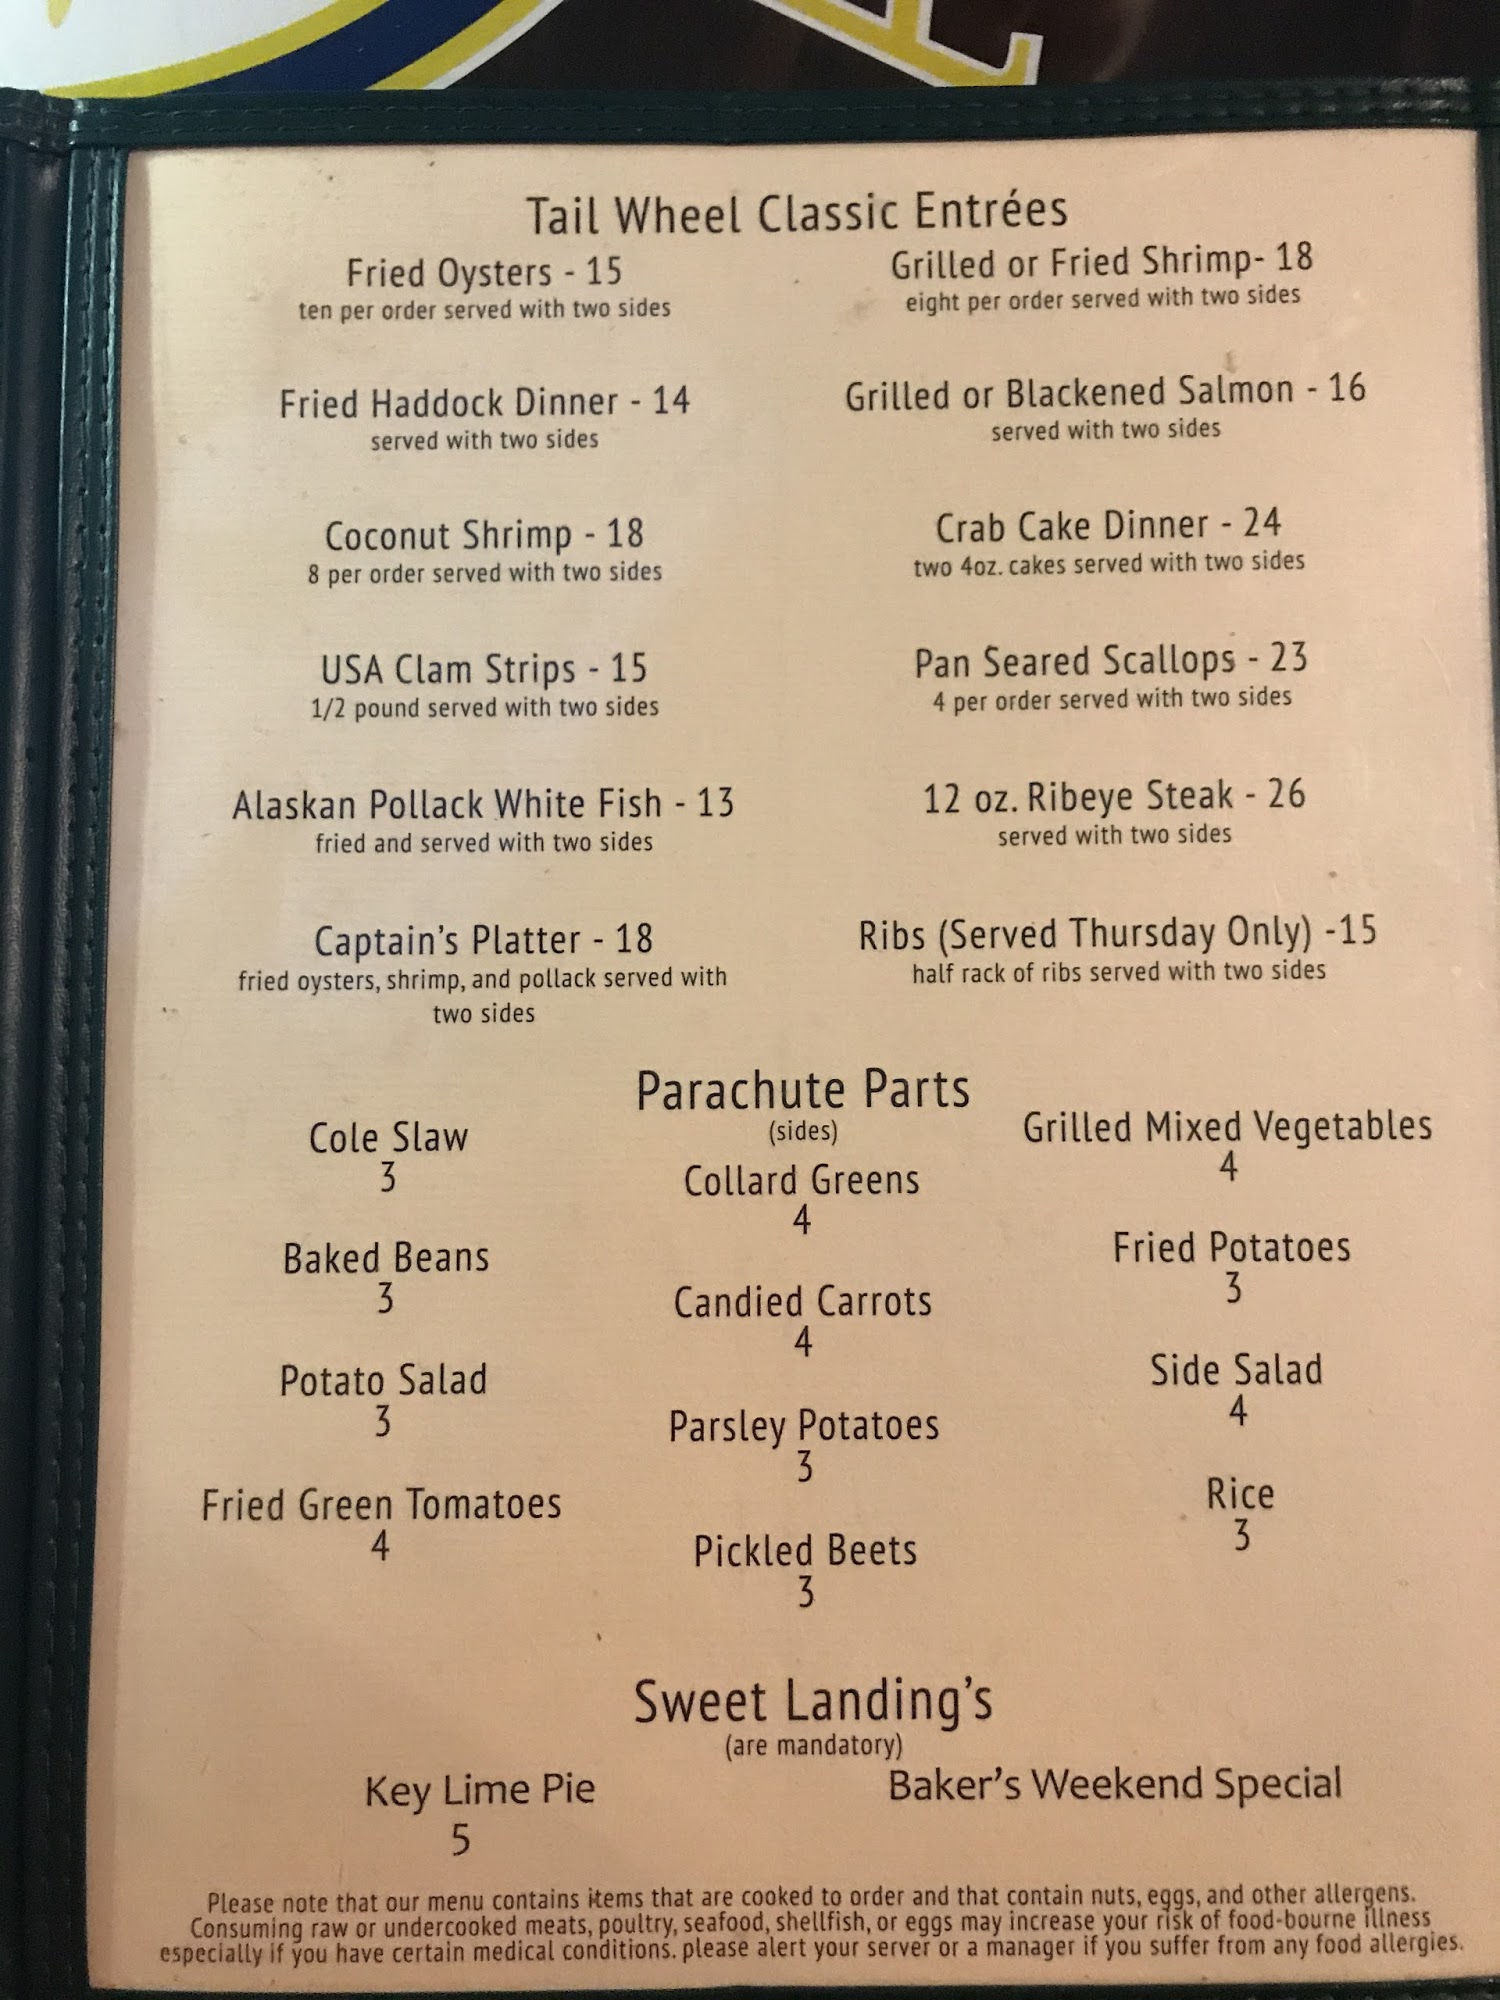 Tail Wheel Classic Entrées
Fried Oysters - 15
ten per order served with two sides
Grilled or Fried Shrimp- 18
eight per order served with two sides
Fried Haddock Dinner - 14
served with two sides
Grilled or Blackened Salmon - 16
served with two sides
Coconut Shrimp - 18
8 per order served with two sides
Crab Cake Dinner - 24
two 4oz. cakes served with two sides
USA Clam Strips - 15
1/2 pound served with two sides
Pan Seared Scallops - 23
4 per order served with two sides
Alaskan Pollack White Fish - 13
fried and served with two sides
12 oz. Ribeye Steak - 26
served with two sides
Captain's Platter - 18
fried oysters, shrimp, and pollack served with
two sides
Ribs (Served Thursday Only) -15
half rack of ribs served with two sides
Parachute Parts
(sides)
Cole Slaw
3
Baked Beans
3
Potato Salad
3
Fried Green Tomatoes
4
Collard Greens
4
Candied Carrots
4
Parsley Potatoes
3
Pickled Beets
3
Grilled Mixed Vegetables
4
Fried Potatoes
3
Side Salad
4
Rice
3
Sweet Landing's
(are mandatory)
Key Lime Pie
5
Baker's Weekend Special
Please note that our menu contains items that are cooked to order and that contain nuts, eggs, and other allergens.
Consuming raw or undercooked meats, poultry, seafood, shellfish, or eggs may increase your risk of food-bourne illness
especially if you have certain medical conditions. please alert your server or a manager if you suffer from any food allergies.